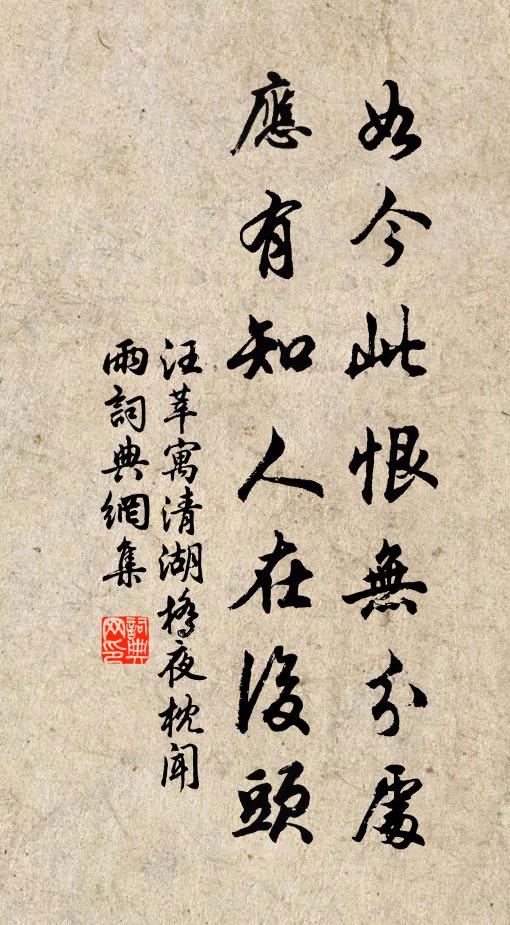 如今此恨無分處
應有知人在後頭
汪莘寓清湖橋夜枕聞
雨詞典網集
詞典
网印